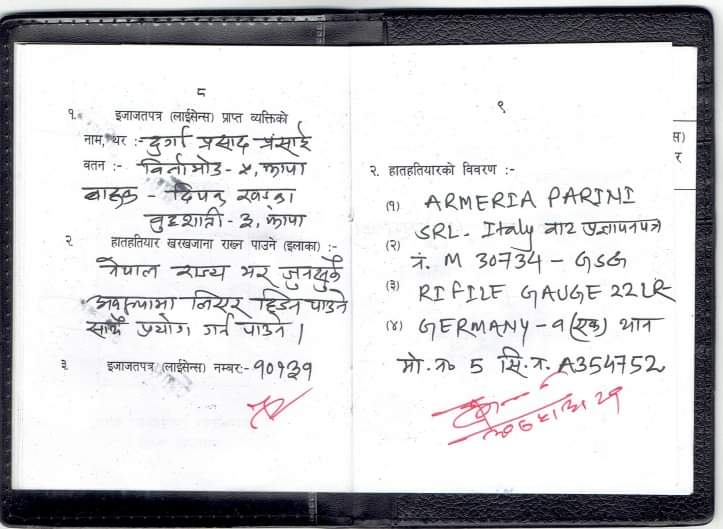 ८
१. इजाजतपत्र (लाईसेन्स) प्राप्त व्यक्तिको
नाम, थर :- दुर्गा प्रसाद प्रसाई
वतन :- विर्तामोड - ५, झापा
वाहक - दिपक खड्का
बुद्धशान्ती - ३, झापा
२ हातहतियार खरखजाना राख्न पाउने (इलाका) :-
नेपाल राज्य भर जुनसुकै
अवस्थामा लिएर हिडन पाउने
साथै प्रयोग गर्न पाउने ।
३ इजाजतपत्र (लाईसेन्स) नम्बर:- १०१३१
९
२. हातहतियारको विवरण :-
(१) ARMERIA PARINI
SRL. Italy बाट प्रज्ञापनपत्र
(२) नं. M 30734 - GSG
(३) RIFILE GAUGE 22LR
(४) GERMANY - १ (एक) थान
मो.नं० 5 सि.नं. A354752
स)
र